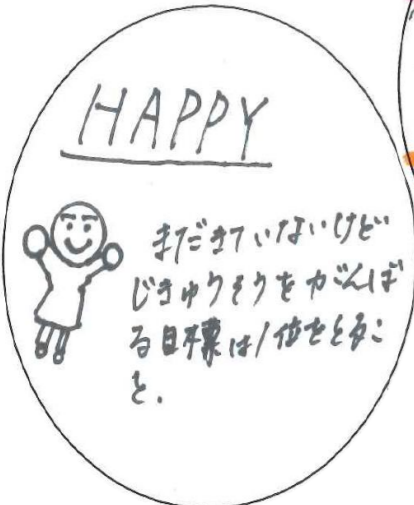 HAPPY
まだきていないけど
じきゅうそうをがんば
る目標は1位をとるこ
と.